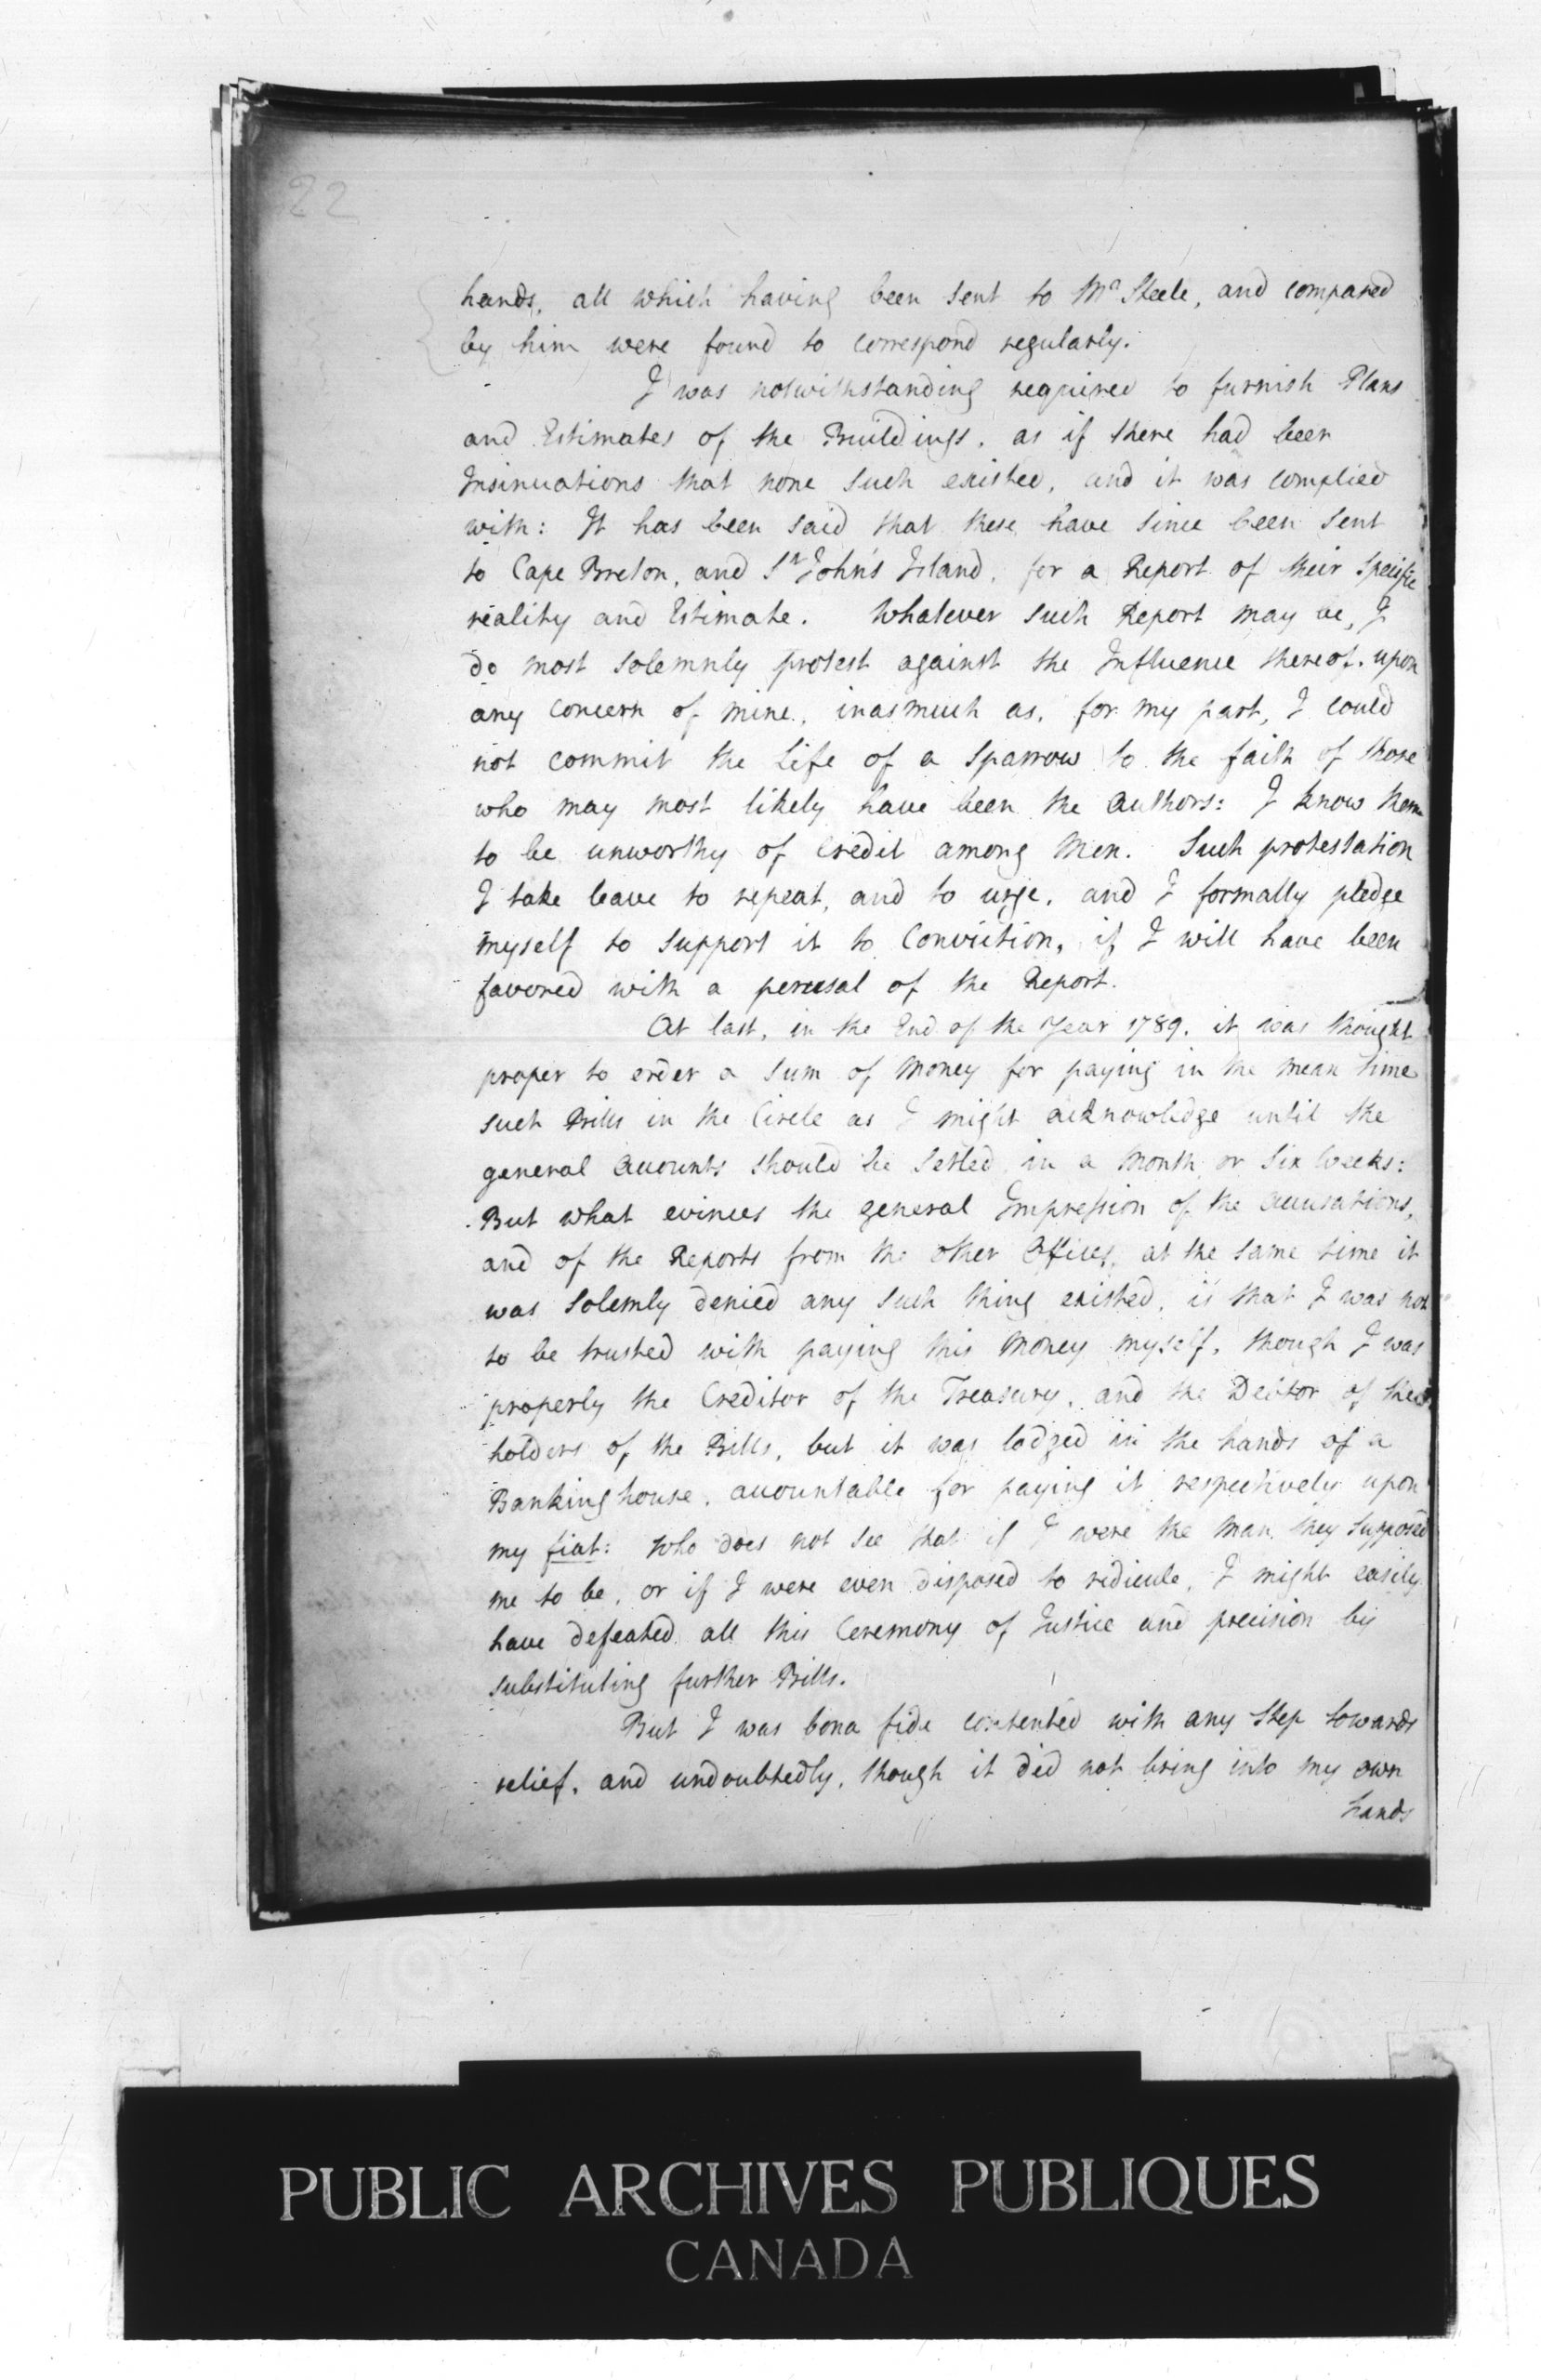 22
hands, all which having been sent to Mr Steele, and compared
by him were found to correspond regularly.
I was notwithstanding required to furnish Plans
and Estimates of the Buildings, as if there had been
Insinuations that none such existed, and it was complied
with: It has been said that these have since been sent
to Cape Breton, and St John's Island, for a Report of their specific
reality and Estimate. Whatever such Report may be, I
do most solemnly protest against the Influence thereof upon
any concern of mine, inasmuch as, for my part, I could
not commit the Life of a Sparrow to the faith of those
who may most likely have been the Authors: I know them
to be unworthy of Credit among Men. Such protestation
I take leave to repeat, and to urge, and I formally pledge
myself to support it to Conviction, if I will have been
favored with a perusal of the Report.
At last, in the End of the Year 1789, it was thought
proper to order a Sum of Money for paying in the mean time
such Bills in the Circle as I might acknowledge until the
general Accounts should be Setled in a Month or Six Weeks:
But what evinces the general Impression of the Accusations,
and of the Reports from the other Offices, at the same time it
was Solemly denied any such thing existed, is that I was not
to be trusted with paying this Money myself, though I was
properly the Creditor of the Treasury, and the Debtor of the
holders of the Bills, but it was lodged in the hands of a
Banking house, accountable for paying it respectively upon
my fiat: Who does not see that if I were the Man they supposed
me to be, or if I were even disposed to ridicule, I might easily
have defeated all this Ceremony of Justice and precision by
substituting further Bills.
But I was bona fide contented with any Step towards
relief, and undoubtedly, though it did not bring into my own
hands
PUBLIC ARCHIVES PUBLIQUES
CANADA